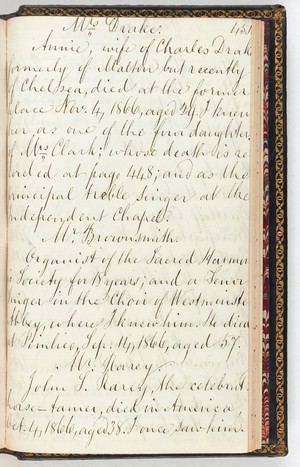 Mrs Drake. 451
Annie, wife of Charles Drak
ormerly of Malton but recently
f Chelsea, died at the former
lace Nov. 4, 1866, aged 39. I knew
er as one of the four daughter
f Mrs Clark; whose death is re
orded at page 448; and as the
rincipal treble singer at the
ndependent Chapel.
Mr Brownsmith.
Organist of the Sacred Harmon
Society for 18 years; and a Tenor
inger in the Choir of Westminste
bbey, where I knew him. He died
t Pimlico, Sep. 14, 1866, aged 57.
Mr Rarey.
John S. Rarey, the celebrat
orse-tamer, died in America
Oct. 4, 1866, aged 38. I once saw him.